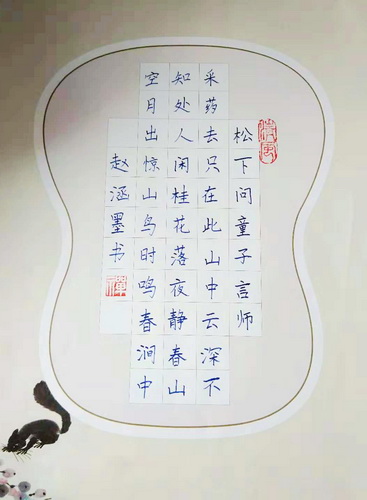 清風
松下问童子言师
采药去只在此山中云深不
知处人闲桂花落夜静春山
空月出惊山鸟时鸣春涧中
赵涵墨书
禪